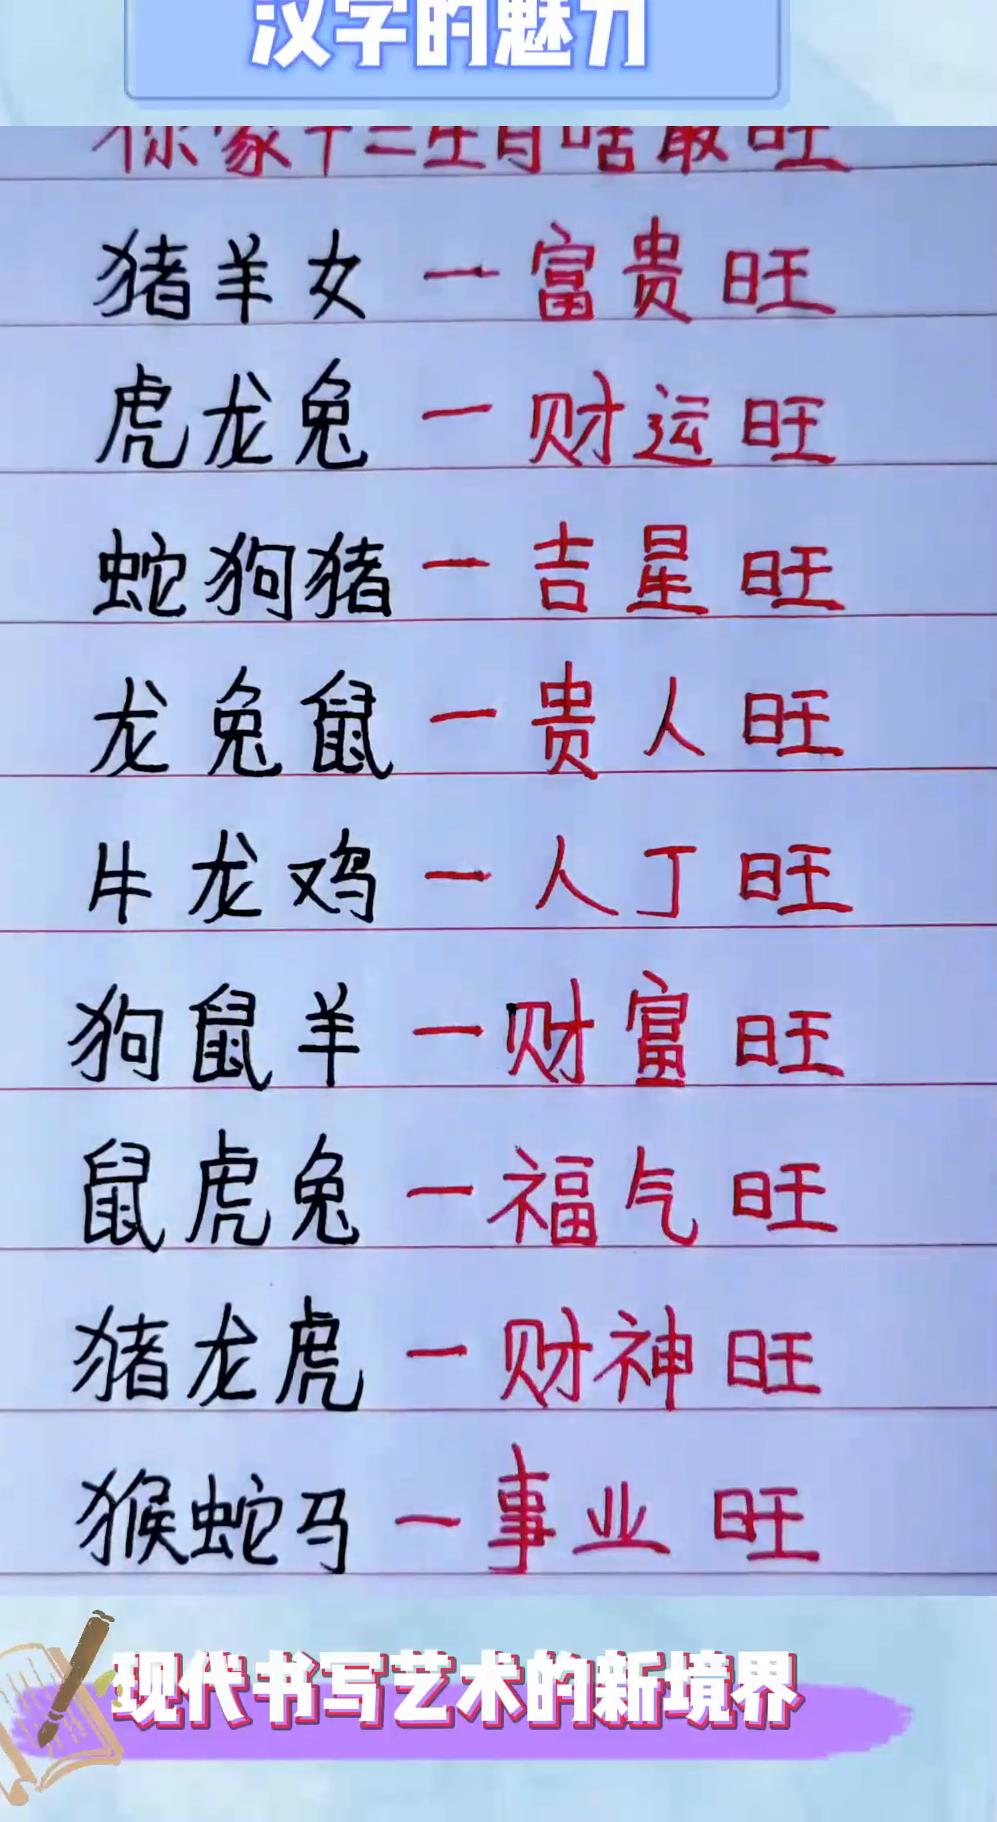 汉字的魅力
你家十二生肖啥最旺
猪羊女一富贵旺
虎龙兔一财运旺
蛇狗猪一吉星旺
龙兔鼠一贵人旺
牛龙鸡一人丁旺
狗鼠羊一财富旺
鼠虎兔一福气旺
猪龙虎一财神旺
猴蛇马一事业旺
现代书写艺术的新境界